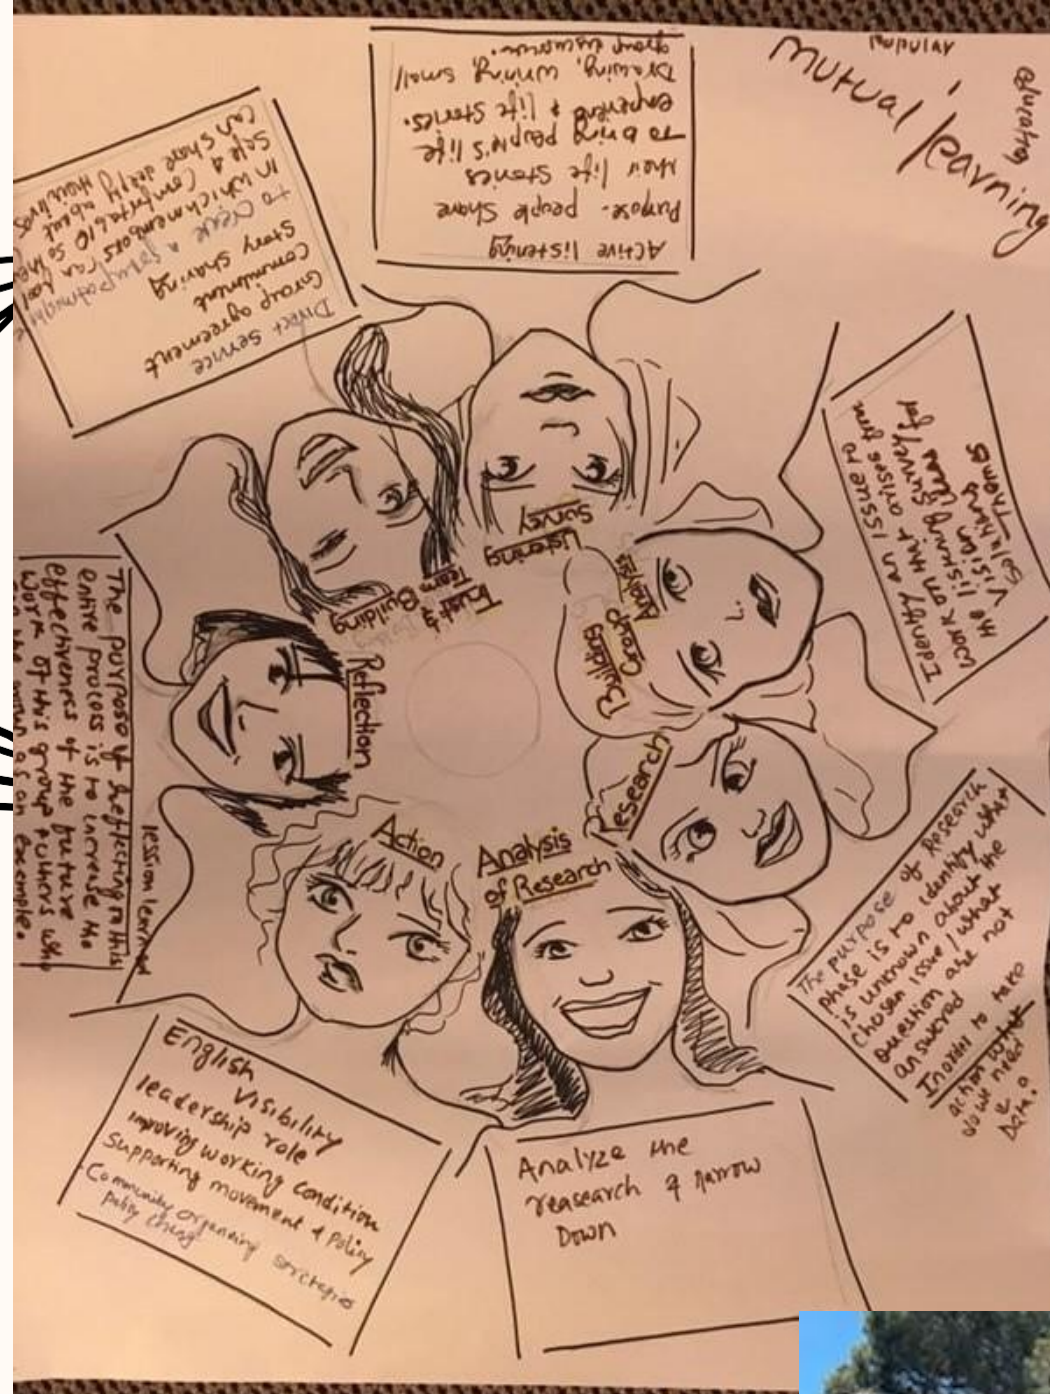 Popular
education
mutual learning
Active listening
Purpose - people share
their life stories
To bring people's life
experience & life stories.
Drawing, writing, small
group discussion.
Direct service
Group agreement
commitment
Story sharing
to create a
in which members can feel
safe & comfortable so they
can share deeply about their lives
Identify an issue to
work on that arises from
the listening survey
vision
Themes
The purpose of Research
phase is to identify what
is unknown about the
chosen issue / what
question are not
answered
Inorder to take
action what
do we need
&
Data.
Analyze the
reasearch & narrow
Down
English
Visibility
leadership role
improving working condition
supporting movement & policy
Community organizing
policy change
lession learned
The purpose of
entire process is to increase the
effectiveness of the future
work of this group &
as an example.
Trust &
Team
Building
Listening
Survey
Building
Group
Analysis
Research
Analysis
of Research
Action
Reflection